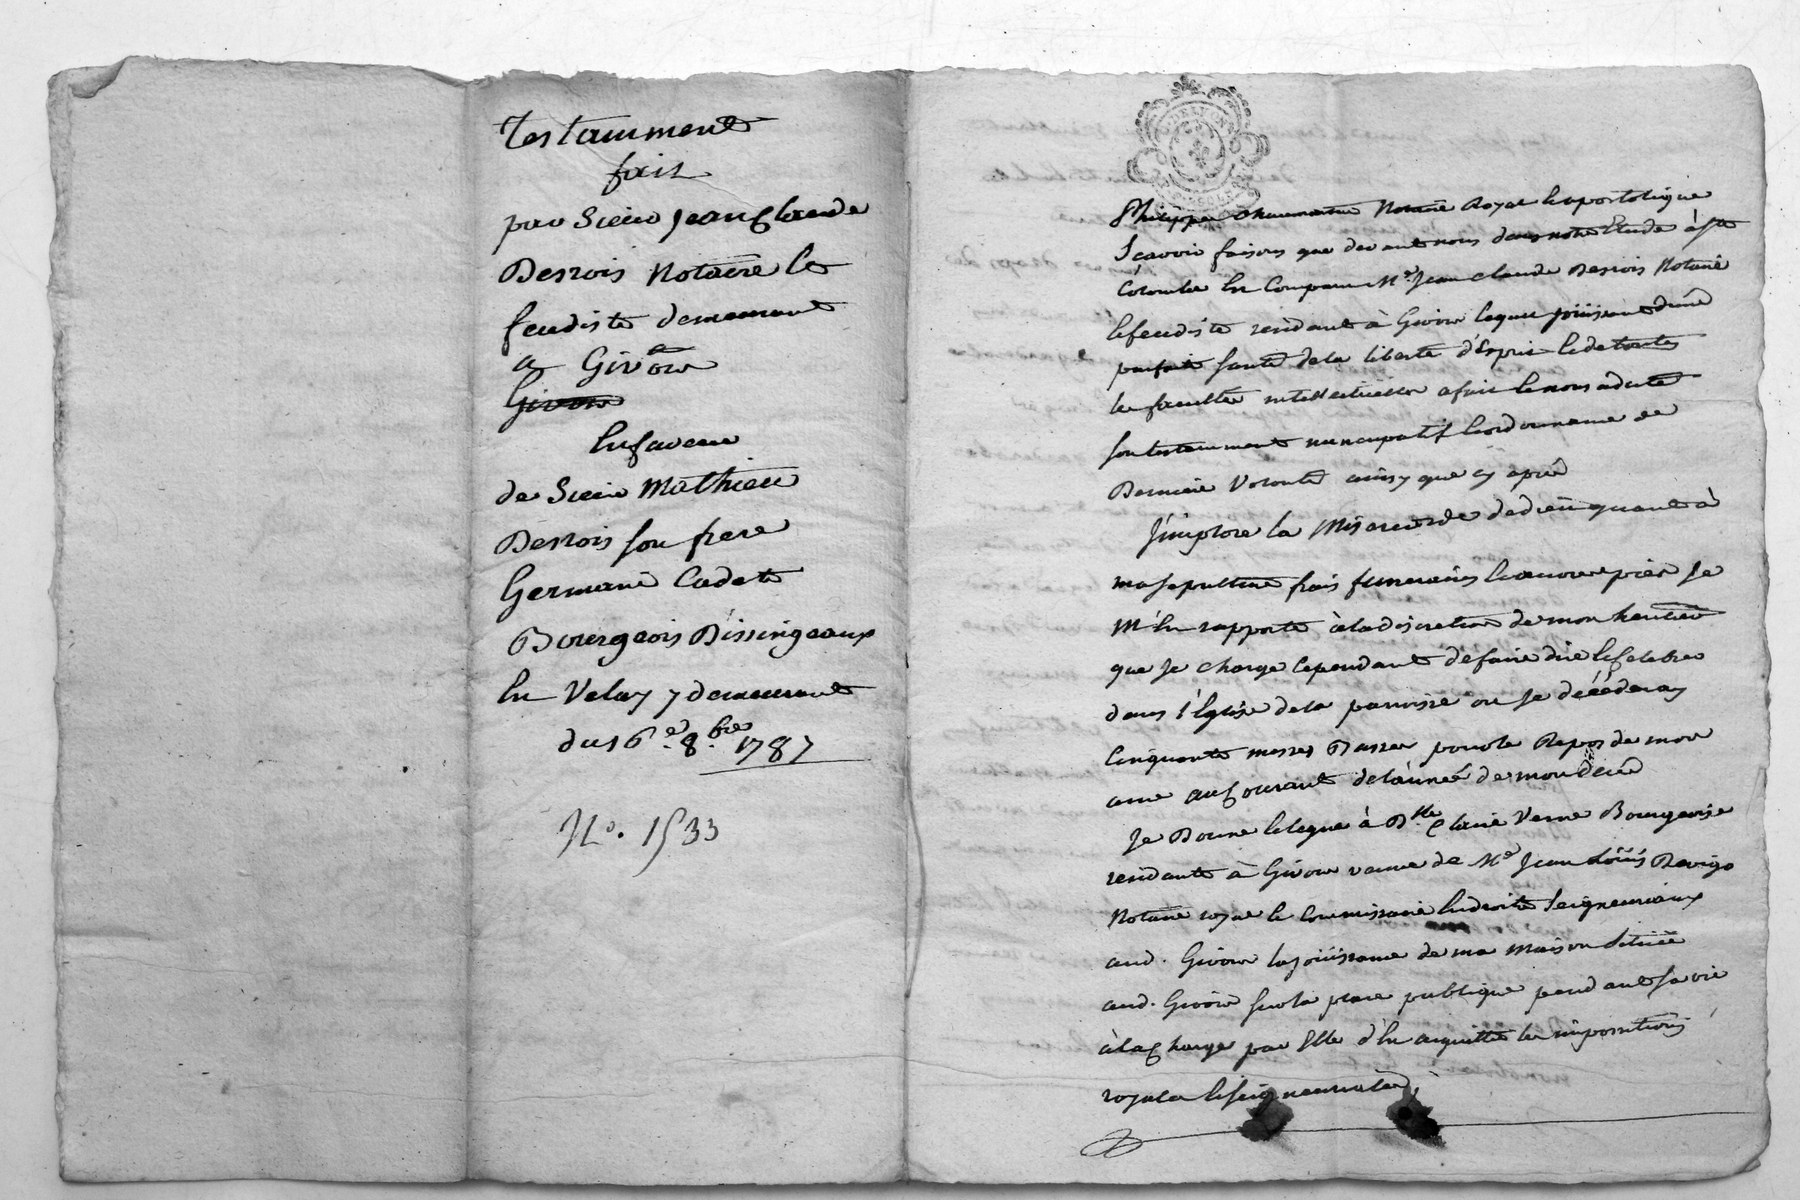 Testamment
fait
par Sieur Jean Claude
Desrois Notaire Et
feudiste demeurant
a Givors
Givors
En faveur
de Sieur Mathieu
Desrois son frere
Germain Cadet
Bourgeois Dissingeaux
En Velay y demeurant
du 16e. 8.bre 1787
No. 1533
DE LYON
Philippe Notaire Royal Et apostolique
Scavoir faisons que devant nous dans notre Etude à Ste
Colombe En Comparu Me. Jean Claude Desrois Notaire
Et feudiste residant à Givors lequel jöuissant d'une
parfaite santé de la liberté d'Esprit Et de toutes
les facultés intellectuelles a fait Et nous a dicté
son testamment nuncupatif Et ordonnance de
Derniere Volonté ainsy que cy aprés
J'implore la Misericorde de dieu quant à
ma sepulture frais funeraires Et œuvres pies Je
m'En rapporte à la discretion de mon heritier
que Je charge Cependant de faire dire Et Celebrer
dans l'Eglise de la parroisse ou Je décéderay
Cinquante messes Basses pour le Repos de mon
ame au Courant de l'année de mon décés
Je Donne Et legue à Dlle Claire Verne Bourgeoise
residante à Givors veuve de Me Jean Loüis
Notaire royal Et Commissaire En droits Seigneuriaux
aud. Givors la jöuissance de ma Maison Située
aud. Givors sur la place publique pendant sa vie
à la Charge par Elle d'En acquitter les impositions
royales Et seigneuriales,